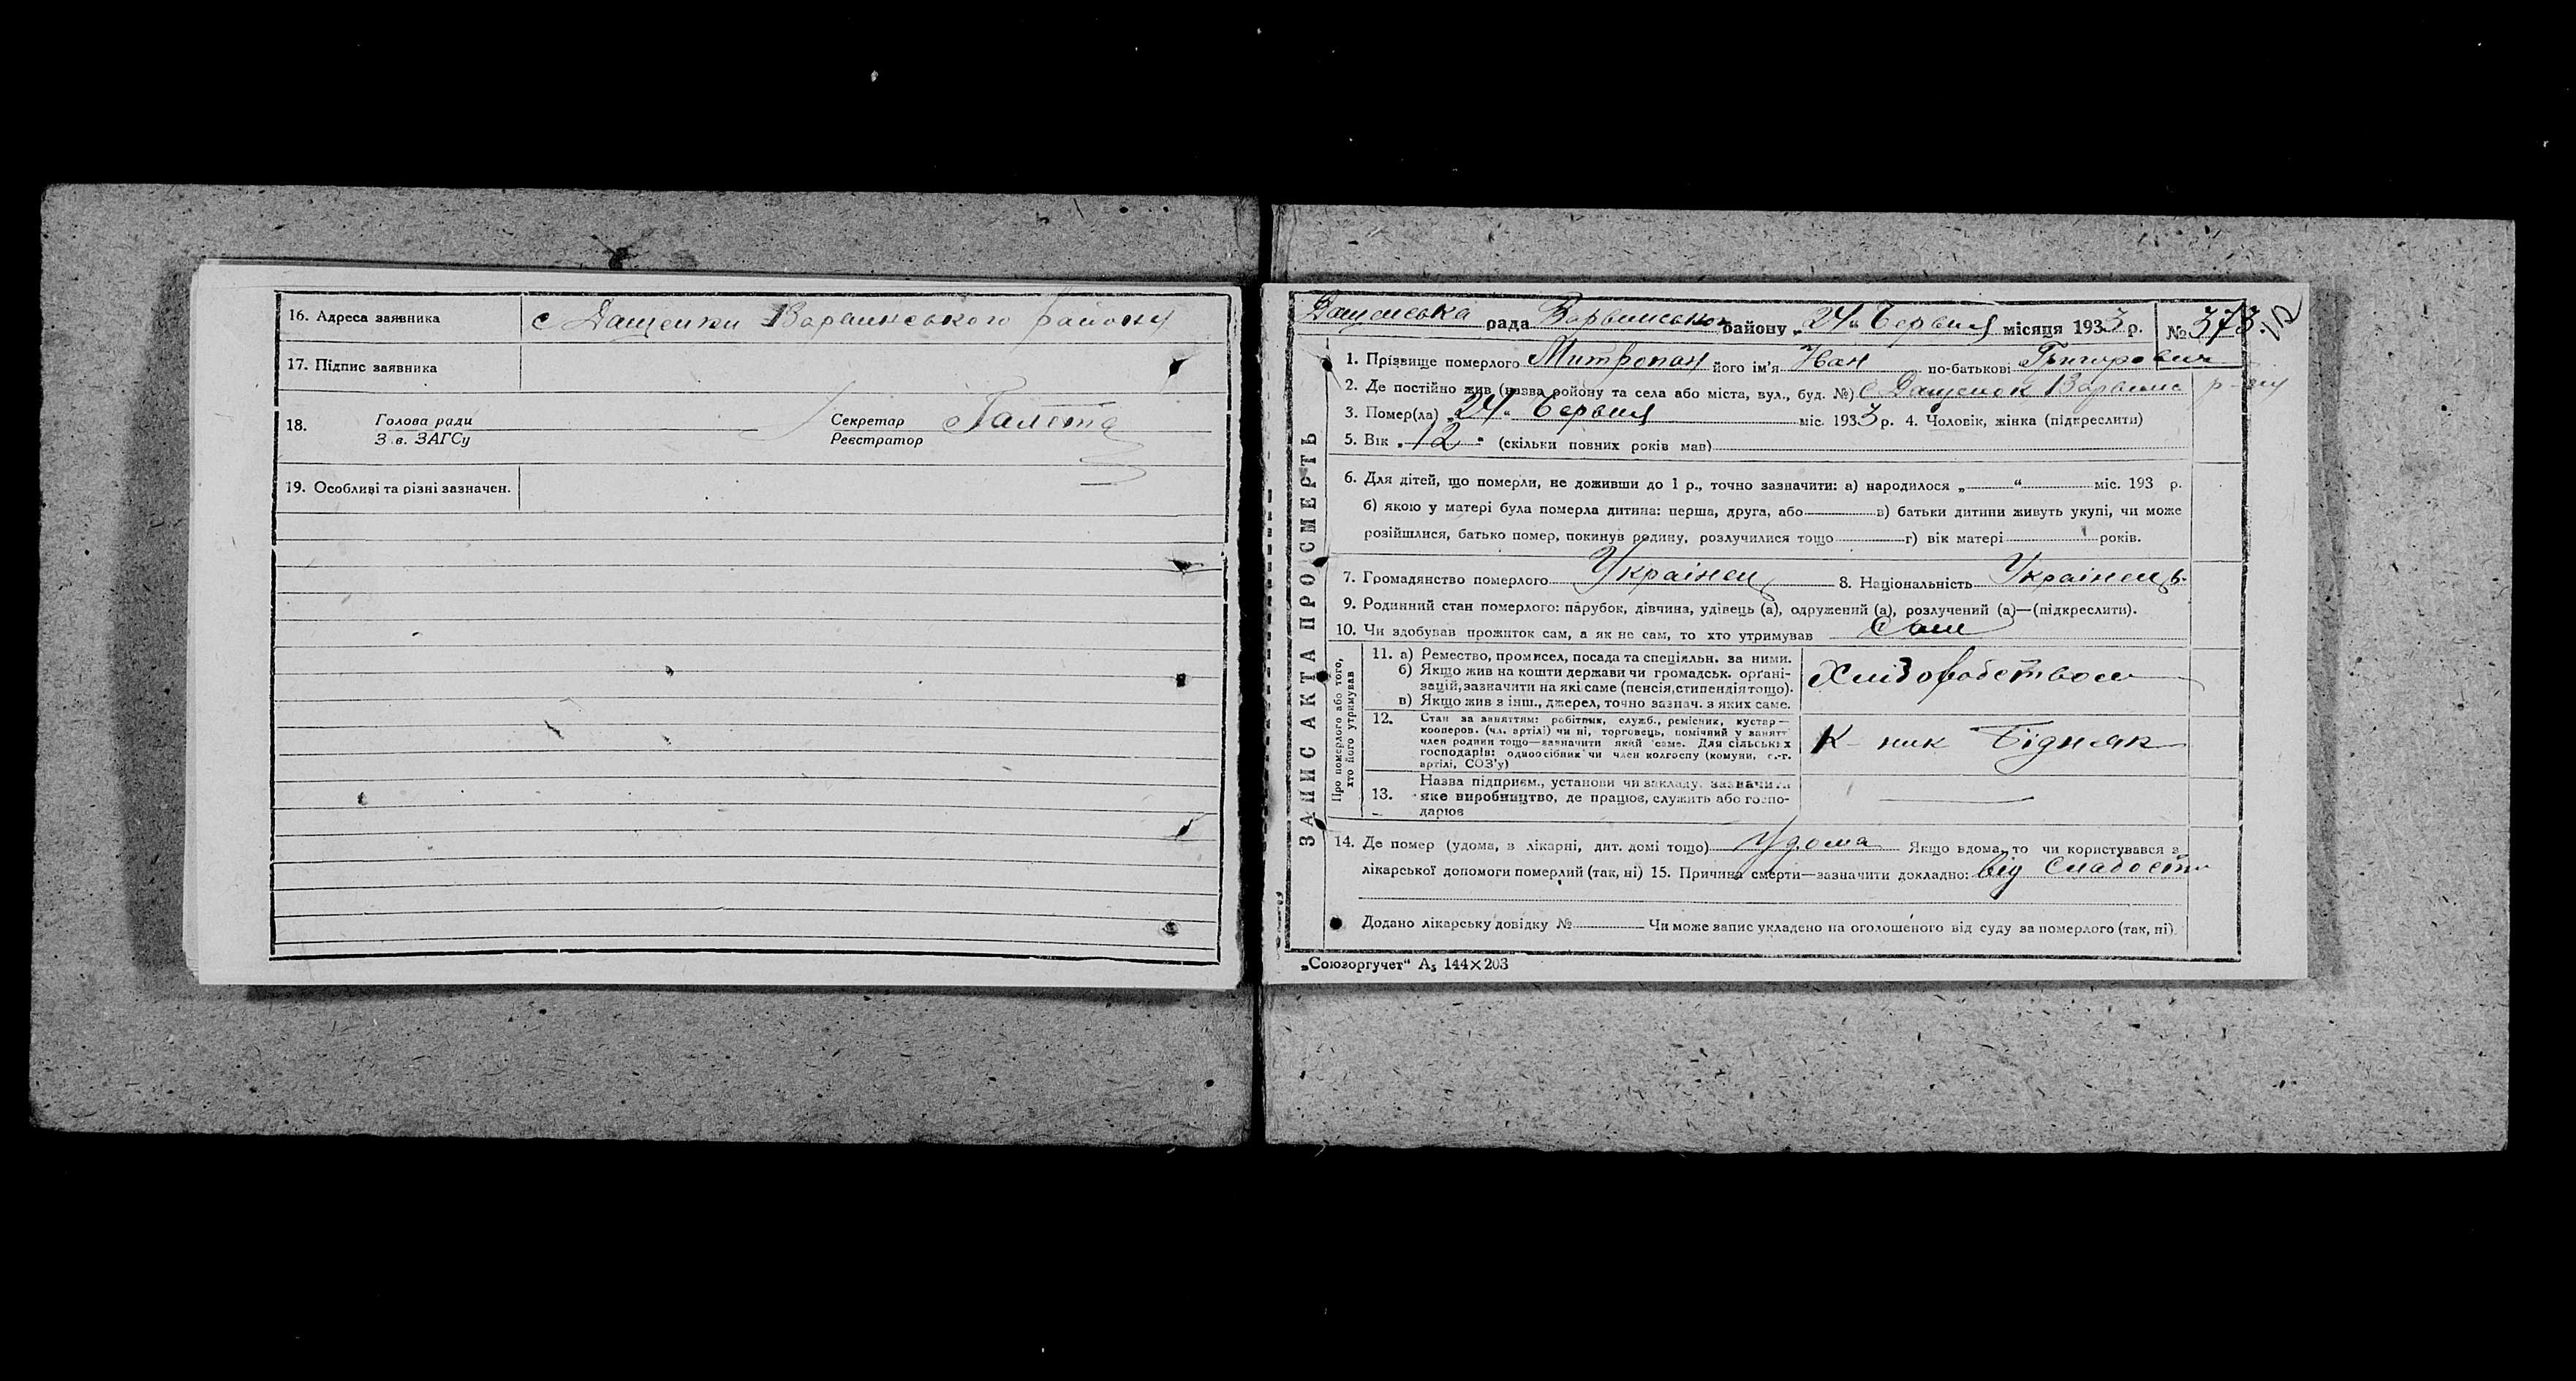 16. Адреса заявника с Дащенки Варвинського району
17. Підпис заявника
18. Голова ради Секретар Галета
З .в. ЗАГСу Реєстратор
19. Особливі та різні зазначен.
Дащенська рада Варвинського району „24“ Червня місяця 1933 р. № 373
ЗАПИС АКТА ПРО СМЕРТЬ
1. Прізвище померлого Митропан його ім'я Іван по-батькові Григорович
2. Де постійно жив (назва району та села або міста, вул., буд. №) с Дащенок Варвинс р-ну
3. Помер(ла) „24“ Червня міс. 1933 р. 4. Чоловік, жінка (підкреслити)
5. Вік „12“ (скільки повних років мав)
6. Для дітей, що померли, не доживши до 1 р., точно зазначити: а) народилося „ “ міс. 193 р.
б) якою у матері була померла дитина: перша, друга, або в) батьки дитини живуть укупі, чи може
розійшлися, батько помер, покинув родину, розлучилися тощо г) вік матері років.
7. Громадянство померлого Украінец 8. Національність Украінець
9. Родинний стан померлого: парубок, дівчина, удівець (а), одружений (а), розлучений (а)—(підкреслити).
10. Чи здобував прожиток сам, а як не сам, то хто утримував Сам
Про померлого або того,
хто його утримував
11. а) Ремество, промисел, посада та спеціяльн. за ними.
б) Якщо жив на кошти держави чи громадськ. орґані-
зацій, зазначити на які саме (пенсія, стипендія тощо).
в) Якщо жив з інш., джерел, точно зазнач. з яких саме.
Хліборобством
12. Стан за заняттям: робітник, служб., ремісник, кустар—
кооперов. (чл. артілі) чи ні, торговець, помічний у занятт
член родини тощо—зазначити який саме. Для сільських
господарів: одноосібник чи член колгоспу (комуни, с.-г.
артілі, СОЗ'у)
К-ник Бідняк
13. Назва підприєм., установи чи закладу, зазначити
яке виробництво, де працює, служить або госпо-
дарює
14. Де помер (удома, в лікарні, дит. домі тощо) Удома Якщо вдома, то чи користувався з
лікарської допомоги померлий (так, ні) 15. Причина смерти—зазначити докладно: від Слабости
Додано лікарську довідку № Чи може запис укладено на оголошеного від суду за померлого (так, ні)
„Союзоргучет“ А₅ 144×203